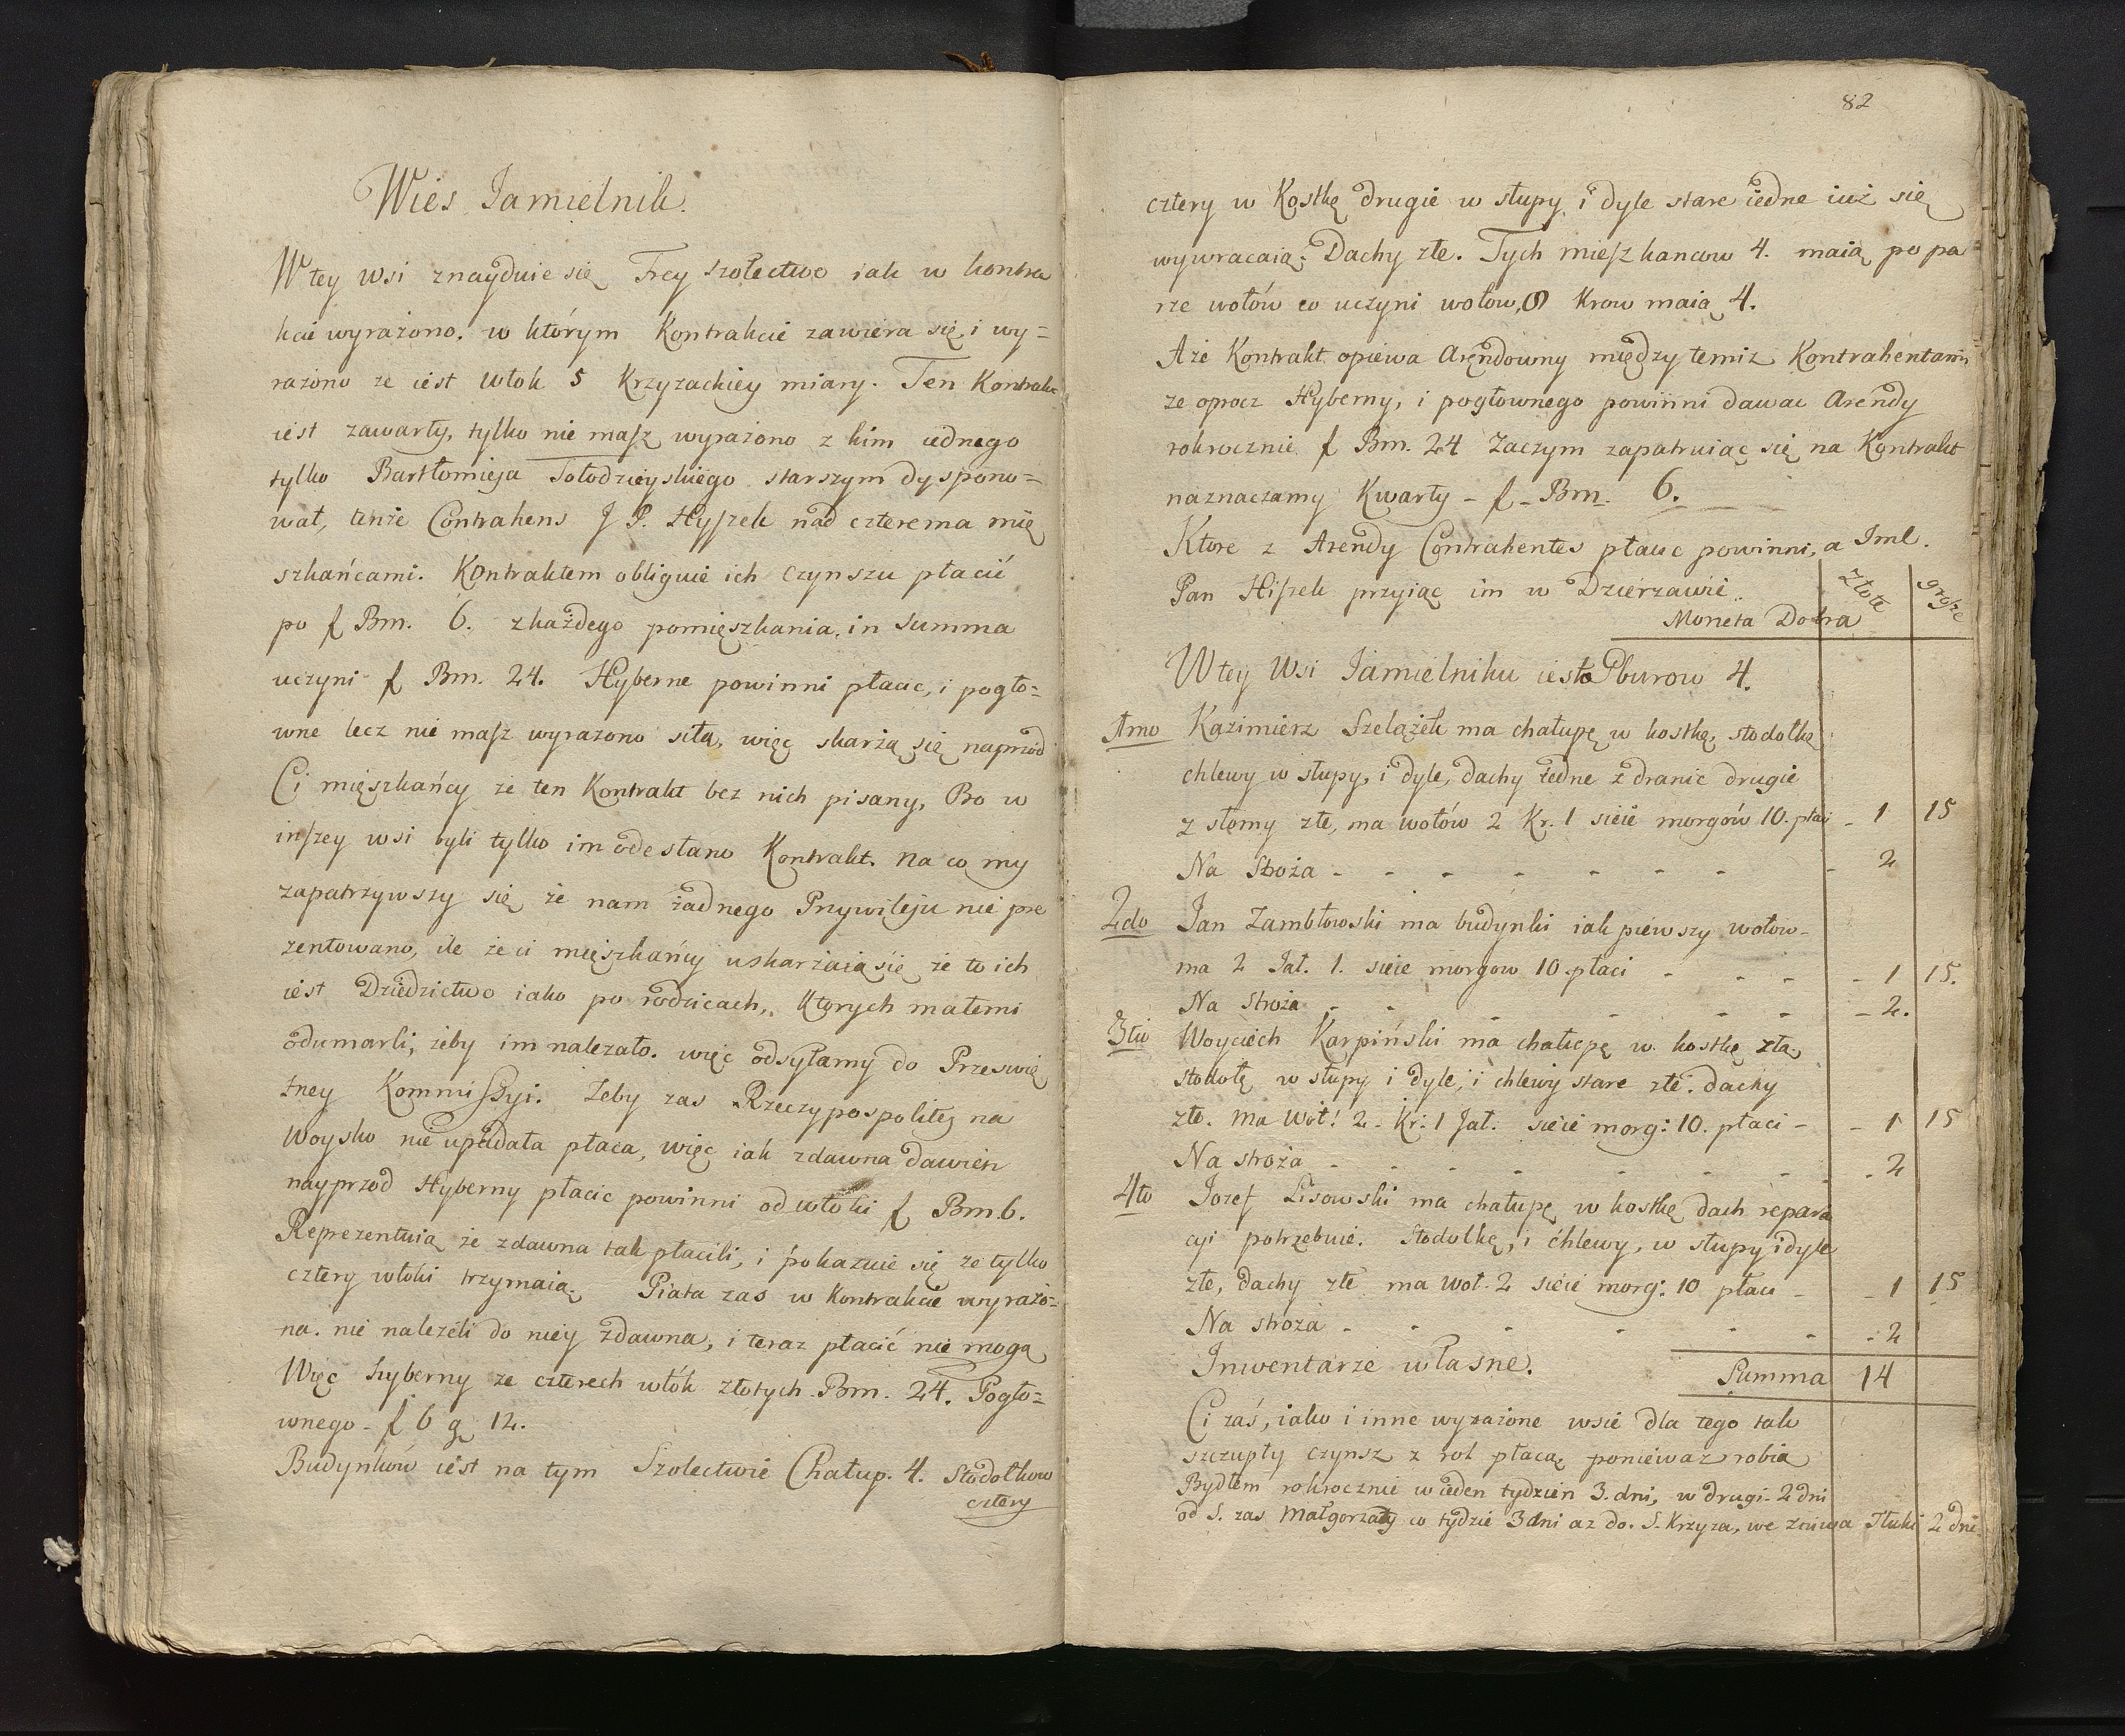 Wies Jamielnik.
W tey wsi znayduie się Frey szołectwo iak w kontra
kcie wyrażono. w którym Kontrakcie zawiera się i wy=
rażono ze iest włok 5 Krzyzackiey miary. Ten Kontrakt
iest zawarty, tylko nie masz wyrażono z kim iednego
tylko Bartłomieja Tołodzieyskiego starszym dyspono=
wał, tenże Contrahens J P. Hyszek nad czterema mię
szkańcami. Kontraktem obliguie ich czynszu płacić
po f Bm. 6. z każdego pomięszkania. in Summa
uczyni f Bm. 24. Hyberne powinni płacic, i pogło=
wne lecz nie masz wyrazono siła, więc skarżą się naprzod
Ci mięszkańcy że ten Kontrakt bez nich pisany, Bo w
inszey wsi byli tylko im odesłano Kontrakt. na co my
zapatrzywszy się że nam żadnego Przywileju nie pre
zentowano, ile że ci mięszkańcy uskarżaią się że to ich
iest Dziedzictwo iako po rodzicach, Ktorych małemi
odumarli, żeby im nalezało. więc odsyłamy do Przeswię
tney Kommiszyi. Zeby zas Rzeczypospolitej na
Woysko nie upadała płaca, więc iak zdawna dawien
nayprzod Hyberny płacic powinni od włoki f Bm 6.
Reprezentuią że zdawna tak płacili, i pokazuie się że tylko
cztery włoki trzymaią. Piata zas w Kontrakcie wyrażo=
na. nie należeli do niey zdawna, i teraz płacić nie mogą
Więc hyberny ze czterech włók złotych Bm. 24. Pogło=
wnego - f 6 g 12.
Budynków iest na tym Szolectwie Chałup. 4. Stodołkow
cztery
82
cztery w Kostkę drugie w słupy i dyle stare iedne iuż się
wywracaią. Dachy złe. Tych mieszkancow 4. maią po pa
rze wołów co uczyni wołow, 8 Krow maią 4.
Aże Kontrakt opiewa Arendowny między temiz Kontrahentami,
ze oprocz Hyberny, i pogłownego powinni dawac Arendy
rokrocznie f Bm. 24 Zaczym zapatruiąc się na Kontrakt
naznaczamy Kwarty - f - Bm. 6.
Ktore z Arendy Contrahentes płacic powinni, a Jml.
Pan Hiszek przyiąc im w Dzierzawie..
Moneta Dobra
złote grosze
W tey Wsi Jamielniku iest Pburow 4.
1mo Kazimierz Szelążek ma chałupę w kostkę, stodołkę
chlewy w słupy, i dyle, dachy iedne z dranic drugie
z słomy złe, ma wołów 2 Kr. 1 sieie morgów 10. płaci - 1 15
Na Stroża - - - - - - - - 2
2do Jan Zambłowski ma budynki iak pierwszy wołow-
ma 2 Jał. 1. sieie morgow 10. płaci - - - - 1 15.
Na Stroża - - - - - - - 2.
3tio Woyciech Karpiński ma chałupę w kostkę złą,
stodołę w słupy i dyle, i chlewy stare złe. dachy
złe. Ma Woł: 2. Kr: 1 Jał. sieie morg: 10. płaci - - 1 15
Na stroża - - - - - - - 2
4to Jozef Lisowski ma chałupę w kostkę dach repara
cyi potrzebuie. Stodołkę, i chlewy, w słupy i dyle
złe, dachy złe ma woł. 2 sieie morg: 10 płaci - - 1 15
Na stroza - - - - - - 2
Inwentarze własne.
Summa 14
Ci zaś, iako i inne wyrażone wsie dla tego tak
szczupły czynsz z rol płacą, poniewaz robią
Bydłem rokrocznie w ieden tydzien 3. dni, w drugi 2 dni
od S. zas Małgorzaty co tydzie 3 dni az do. S. Krzyza, we żniwa Tłuki 2 dni